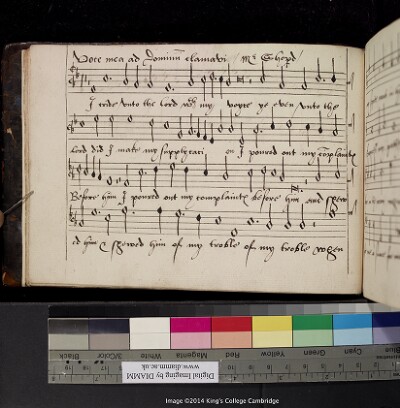 Voce mea ad Dominum clamavi / Mr Shepd
I cride unto the Lord wth my voyce ye even unto the
Lord did I make my supplycati on I poured out my complaint
Before him I poured out my complaint before him And shew
ed him & shewed him of my troble of my troble when
Black
3/Color
White
Magenta
Red
Yellow
Green
Cyan
Blue
Digital Imaging by DIAMM
www.diamm.ac.uk
Image ©2014 King's College Cambridge